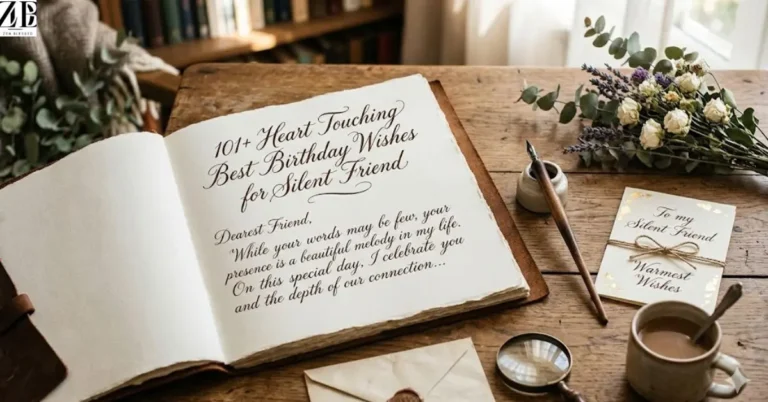 ZB
101+ Heart Touching
Best Birthday Wishes
for Silent Friend
Dearest Friend,
"While your words may be few, your
presence is a beautiful melody in my life.
On this special day, I celebrate you
and the depth of our connection...
To my
Silent Friend
Warmest
Wishes